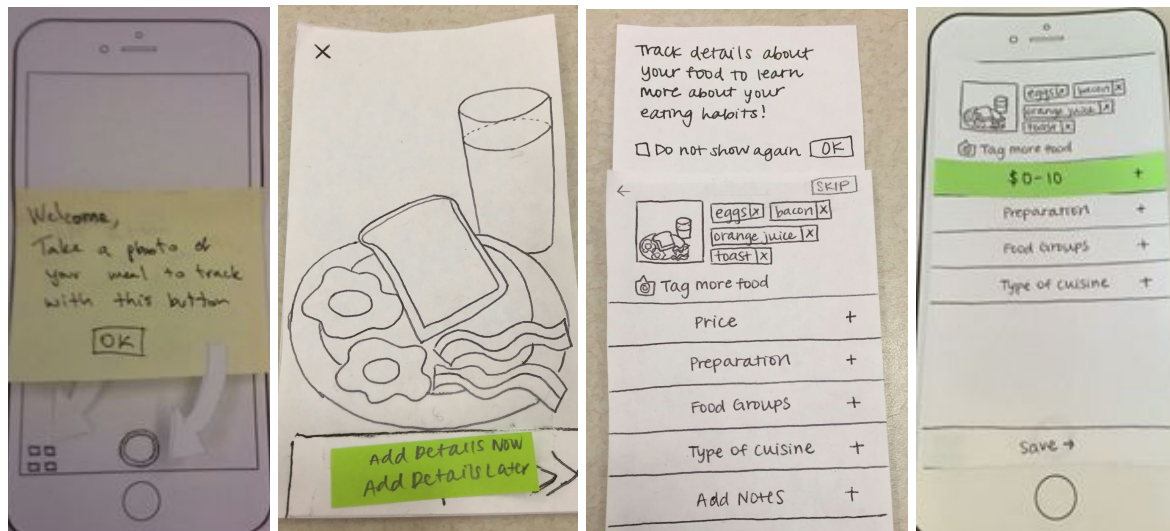 Welcome,
Take a photo of
your meal to track
with this button
OK
X
Add Details Now
Add Details Later
Track details about
your food to learn
more about your
eating habits!
Do not show again OK
← SKIP
eggs x bacon x
orange juice x
toast x
Tag more food
Price +
Preparation +
Food Groups +
Type of cuisine +
Add Notes +
eggs x bacon x
orange juice x
toast x
Tag more food
$0-10 +
Preparation +
Food Groups +
Type of cuisine +
Save →